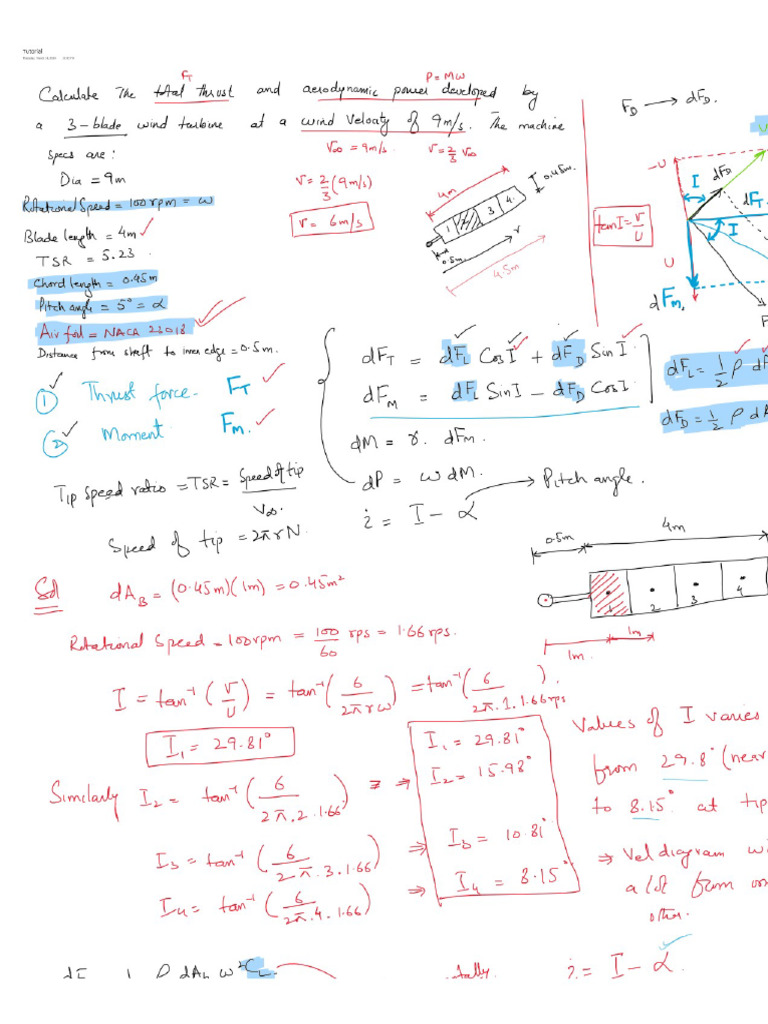 Tutorial
F_T P = MW
Calculate The total Thrust and aerodynamic power developed by
a 3-blade wind turbine at a wind velocity of 9m/s. The machine
specs are:
V∞ = 9m/s. v = 2/3 V∞
Dia = 9m
v = 2/3 (9m/s)
v = 6m/s
Rotational Speed = 100 rpm = ω
Blade length = 4m
TSR = 5.23
Chord length = 0.45m
Pitch angle = 5° = α
Air foil = NACA 23018
Distance from shaft to inner edge = 0.5m.
4m
0.45m
1 2 3 4
0.5m
r
4.5m
F_D → dF_D.
-U
I
dF_D
dF
tan I = v/U
I
U
dF_m
① Thrust force. F_T
② Moment F_m.
dF_T = dF_L Cos I + dF_D Sin I
dF_M = dF_L Sin I - dF_D Cos I
dF_L = 1/2 ρ dA
dF_D = 1/2 ρ dA
dM = r. dF_m.
dP = ω dM.
i = I - α → Pitch angle.
Tip speed ratio = TSR = Speed of tip / V∞.
Speed of tip = 2πrN.
0.5m 4m
1 2 3 4
1m
1m.
Sol
dA_B = (0.45m)(1m) = 0.45m²
Rotational Speed = 100rpm = 100/60 rps = 1.66 rps.
I = tan⁻¹(v/U) = tan⁻¹(6/2πrω) = tan⁻¹(6/2π.1.1.66rps).
I₁ = 29.81°
Similarly I₂ = tan⁻¹(6/2π.2.1.66) ⇒
I₃ = tan⁻¹(6/2π.3.1.66) ⇒
I₄ = tan⁻¹(6/2π.4.1.66) ⇒
I₁ = 29.81°
I₂ = 15.98°
I₃ = 10.81°
I₄ = 8.15°
Values of I varies
from 29.8° (near
to 8.15° at tip
⇒ Vel diagram
a lot from on
other.
ρ dA_b ω² C_L
i = I - α.